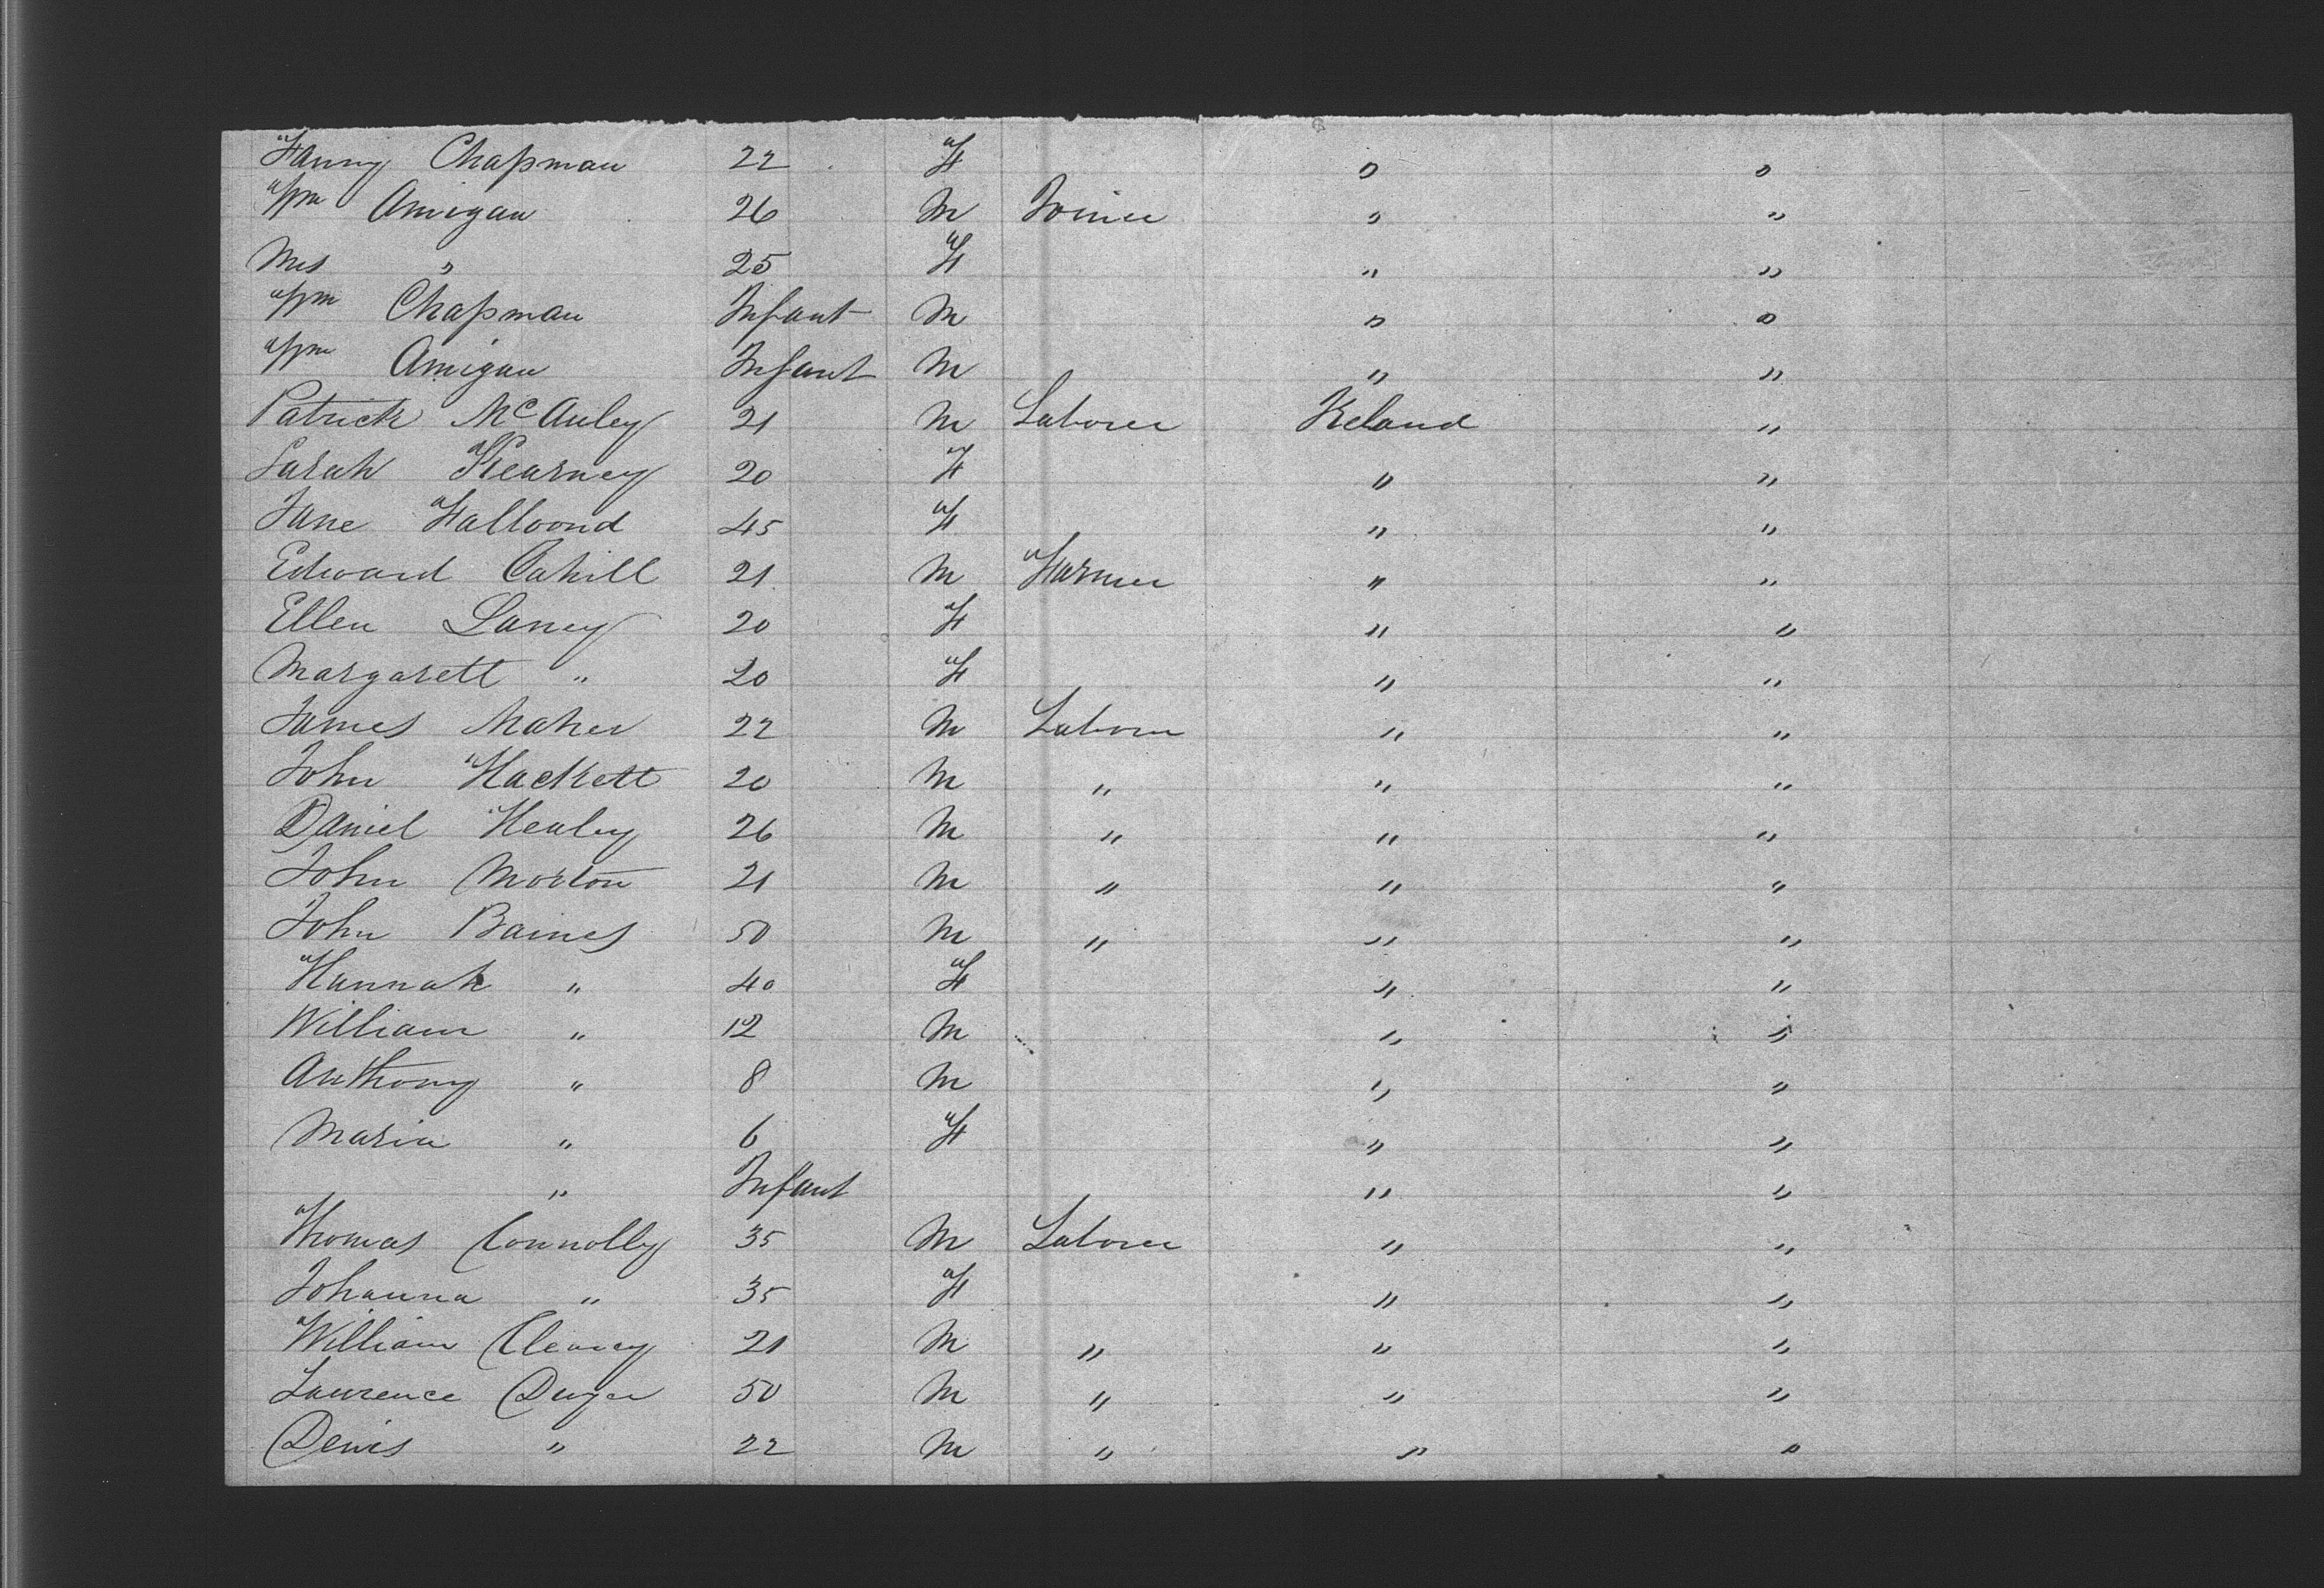 Fanny Chapman 22 F " "
Wm Amigan 26 M Joiner " "
Mrs " 25 F " "
Wm Chapman Infant M " "
Wm Amigan Infant M " "
Patrick McAuley 21 M Laborer Ireland "
Sarah Kearney 20 F " "
Jane Falloond 45 F " "
Edward Cahill 21 M Farmer " "
Ellen Laney 20 F " "
Margarett " 20 F " "
James Maher 22 M Laborer " "
John Hackett 20 M " " "
Daniel Healey 26 M " " "
John Morton 21 M " " "
John Baines 50 M " " "
Hannah " 40 F " "
William " 12 M " "
Anthony " 8 M " "
Maria " 6 F " "
" Infant " "
Thomas Connolly 35 M Laborer " "
Johanna " 35 F " "
William Cleary 21 M " " "
Lawrence 50 M " " "
Denis " 22 M " " "